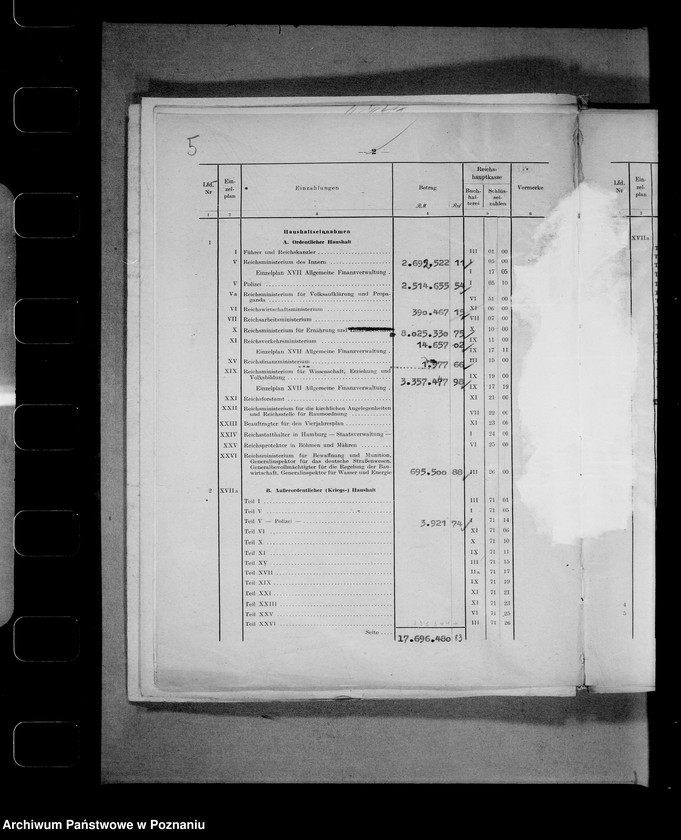 5
2
Lfd. Nr
Ein- zel- plan
Einzahlungen
Betrag
Reichs- hauptkasse
Buch- hal- terei
Schlüs- sel- zahlen
Vermerke
RM
Rpf
1 2 3 4 5 6
Haushaltseinnahmen
1 A. Ordentlicher Haushalt
I Führer und Reichskanzler III 01 00
V Reichsministerium des Innern 2.692.522 11 I 05 00
Einzelplan XVII Allgemeine Finanzverwaltung I 17 05
V Polizei 2.514.655 54 I 05 10
Va Reichsministerium für Volksaufklärung und Propa-
ganda VI 51 00
VI Reichswirtschaftsministerium 390.467 15 XI 06 00
VII Reichsarbeitsministerium VII 07 00
X Reichsministerium für Ernährung und 8.025.330 75 X 10 00
XI Reichsverkehrsministerium 14.657 02 IX 11 00
Einzelplan XVII Allgemeine Finanzverwaltung IX 17 11
XV Reichsfinanzministerium 1.977 66 III 15 00
XIX Reichsministerium für Wissenschaft, Erziehung und
Volksbildung IX 19 00
Einzelplan XVII Allgemeine Finanzverwaltung 3.357.447 98 IX 17 19
XXI Reichsforstamt XI 21 00
XXII Reichsministerium für die kirchlichen Angelegenheiten
und Reichsstelle für Raumordnung VII 22 00
XXIII Beauftragter für den Vierjahresplan XI 23 00
XXIV Reichsstatthalter in Hamburg — Staatsverwaltung — I 24 00
XXV Reichsprotektor in Böhmen und Mähren VI 25 00
XXVI Reichsministerium für Bewaffnung und Munition,
Generalinspektor für das deutsche Straßenwesen,
Generalbevollmächtigter für die Regelung der Bau-
wirtschaft, Generalinspektor für Wasser und Energie 695.500 88 III 26 00
2 XVIIa B. Außerordentlicher (Kriegs-) Haushalt
Teil I III 71 01
Teil V I 71 05
Teil V — Polizei — 3.921 74 I 71 14
Teil VI XI 71 06
Teil X X 71 10
Teil XI IX 71 11
Teil XV III 71 15
Teil XVII IIa 71 17
Teil XIX IX 71 19
Teil XXI XI 71 21
Teil XXIII XI 71 23
Teil XXV VI 71 25
Teil XXVI III 71 26
Seite 17.696.480 13
Lfd. Nr
Ein- zel- plan
1 2
XVIIa
4
5
Archiwum Państwowe w Poznaniu